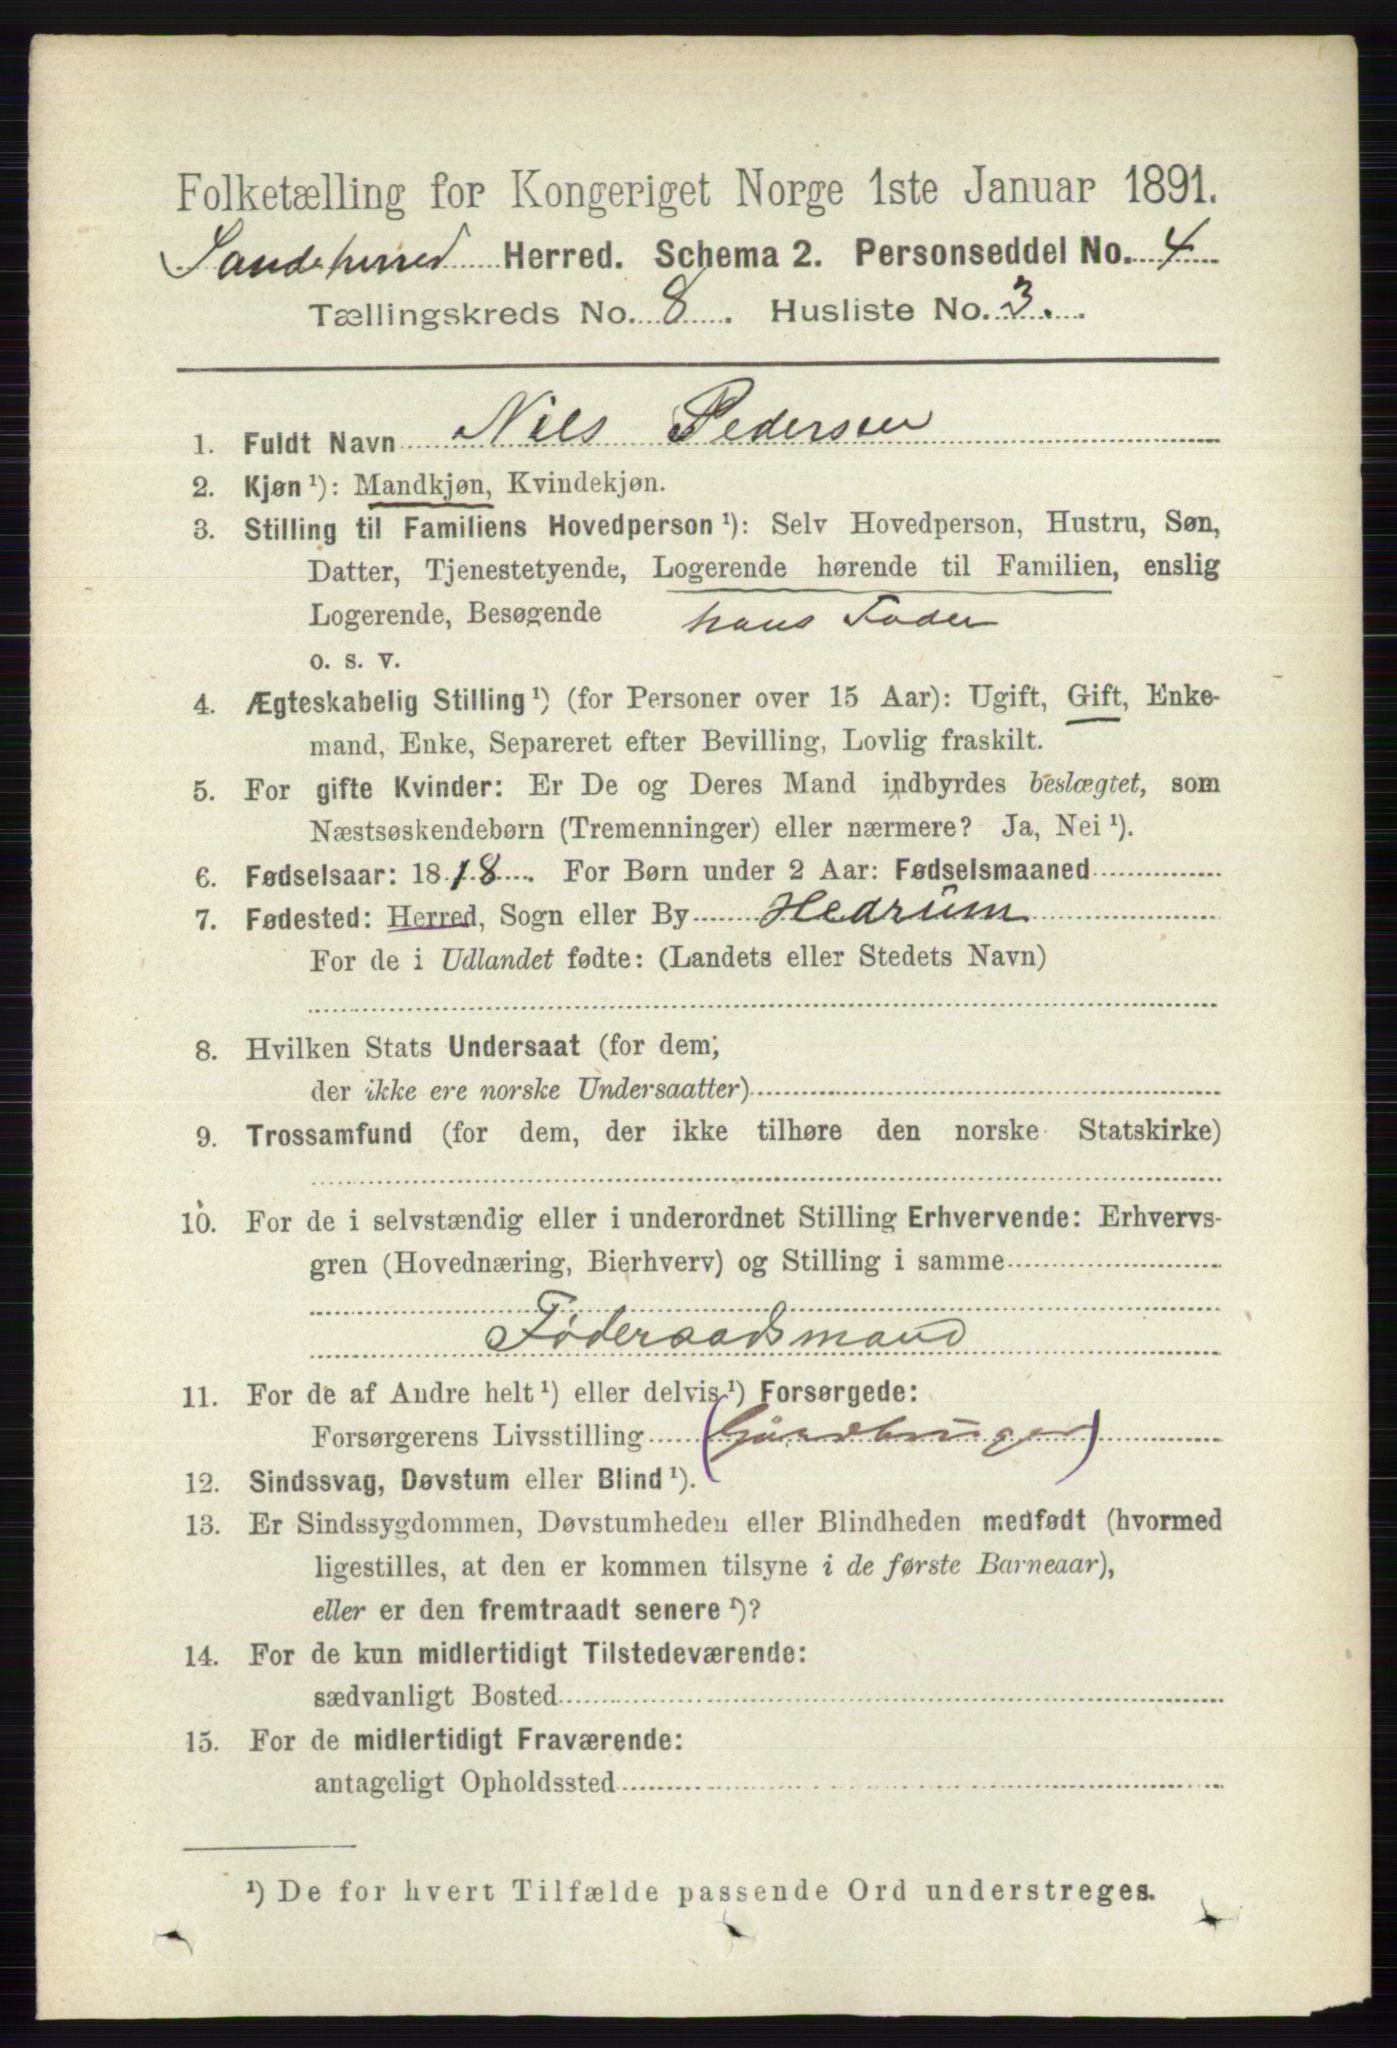 Folketælling for Kongeriget Norge 1ste Januar 1891.
Sandeherred Herred. Schema 2. Personseddel No. 4
Tællingskreds No. 8. Husliste No. 3.
1. Fuldt Navn Nils Pedersen
2. Kjøn¹): Mandkjøn, Kvindekjøn.
3. Stilling til Familiens Hovedperson¹): Selv Hovedperson, Hustru, Søn,
Datter, Tjenestetyende, Logerende hørende til Familien, enslig
Logerende, Besøgende hans Fader
o. s. v.
4. Ægteskabelig Stilling¹) (for Personer over 15 Aar): Ugift, Gift, Enke-
mand, Enke, Separeret efter Bevilling, Lovlig fraskilt.
5. For gifte Kvinder: Er De og Deres Mand indbyrdes beslægtet, som
Næstsøskendebørn (Tremenninger) eller nærmere? Ja, Nei¹).
6. Fødselsaar: 1818. For Børn under 2 Aar: Fødselsmaaned
7. Fødested: Herred, Sogn eller By Hedrum
For de i Udlandet fødte: (Landets eller Stedets Navn)
8. Hvilken Stats Undersaat (for dem,
der ikke ere norske Undersaatter)
9. Trossamfund (for dem, der ikke tilhøre den norske Statskirke)
10. For de i selvstændig eller i underordnet Stilling Erhvervende: Erhvervs-
gren (Hovednæring, Bierhverv) og Stilling i samme
Føderaadsmand
11. For de af Andre helt¹) eller delvis¹) Forsørgede:
Forsørgerens Livsstilling (Gaardbruger)
12. Sindssvag, Døvstum eller Blind¹).
13. Er Sindssygdommen, Døvstumheden eller Blindheden medfødt (hvormed
ligestilles, at den er kommen tilsyne i de første Barneaar),
eller er den fremtraadt senere¹)?
14. For de kun midlertidigt Tilstedeværende:
sædvanligt Bosted
15. For de midlertidigt Fraværende:
antageligt Opholdssted
¹) De for hvert Tilfælde passende Ord understreges.